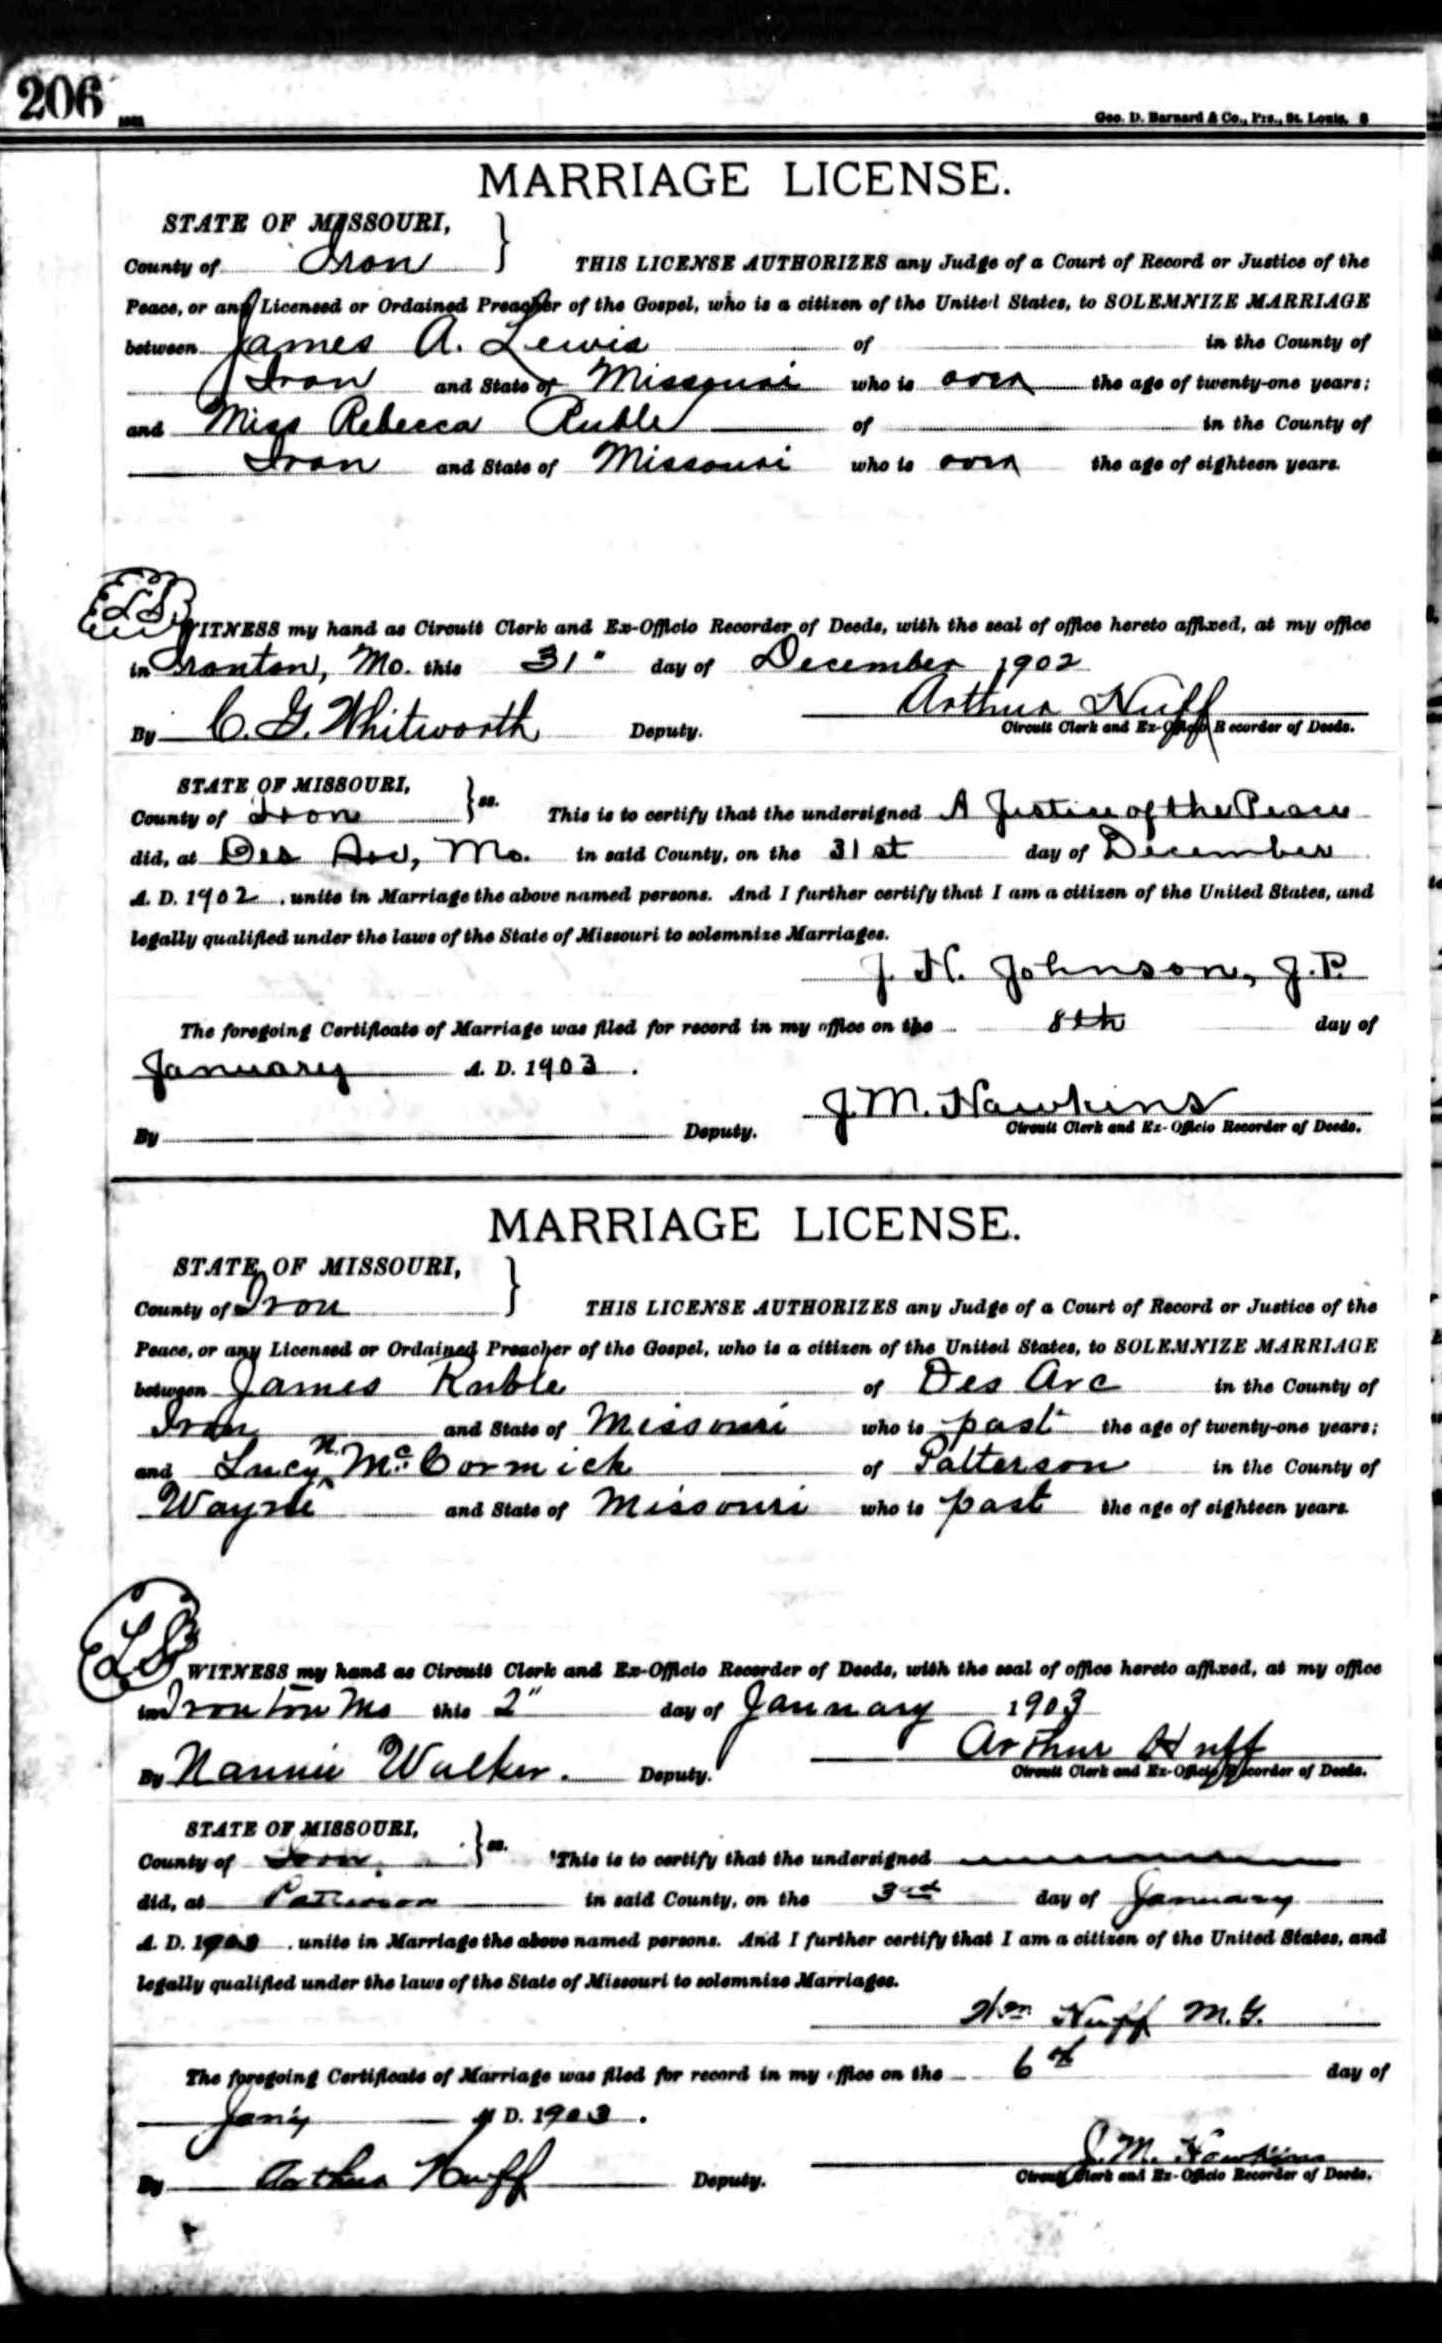 206
Geo. D. Barnard & Co., Prs., St. Louis. S
MARRIAGE LICENSE.
STATE OF MISSOURI,
County of Iron } THIS LICENSE AUTHORIZES any Judge of a Court of Record or Justice of the
Peace, or any Licensed or Ordained Preacher of the Gospel, who is a citizen of the United States, to SOLEMNIZE MARRIAGE
between James A. Lewis of in the County of
Iron and State of Missouri who is over the age of twenty-one years;
and Miss Rebecca Ruble of in the County of
Iron and State of Missouri who is over the age of eighteen years.
LS WITNESS my hand as Circuit Clerk and Ex-Officio Recorder of Deeds, with the seal of office hereto affixed, at my office
in Ironton, Mo. this 31" day of December 1902
Arthur Huff
By C. G. Whitworth Deputy. Circuit Clerk and Ex-Officio Recorder of Deeds.
STATE OF MISSOURI,
County of Iron } ss. This is to certify that the undersigned A Justice of the Peace
did, at Des Arc, Mo. in said County, on the 31st day of December
A. D. 1902, unite in Marriage the above named persons. And I further certify that I am a citizen of the United States, and
legally qualified under the laws of the State of Missouri to solemnize Marriages.
J. H. Johnson, J.P.
The foregoing Certificate of Marriage was filed for record in my office on the 8th day of
January A. D. 1903.
J. M. Hawkins
By Deputy. Circuit Clerk and Ex-Officio Recorder of Deeds.
MARRIAGE LICENSE.
STATE OF MISSOURI,
County of Iron } THIS LICENSE AUTHORIZES any Judge of a Court of Record or Justice of the
Peace, or any Licensed or Ordained Preacher of the Gospel, who is a citizen of the United States, to SOLEMNIZE MARRIAGE
between James Ruble of Des Arc in the County of
Iron and State of Missouri who is past the age of twenty-one years;
and Lucy N. McCormick of Patterson in the County of
Wayne and State of Missouri who is past the age of eighteen years.
LS WITNESS my hand as Circuit Clerk and Ex-Officio Recorder of Deeds, with the seal of office hereto affixed, at my office
in Ironton Mo this 2" day of January 1903
Arthur Huff
By Nannie Walker. Deputy. Circuit Clerk and Ex-Officio Recorder of Deeds.
STATE OF MISSOURI,
County of Iron, } ss. This is to certify that the undersigned
did, at Patterson in said County, on the 3rd day of January
A. D. 1903, unite in Marriage the above named persons. And I further certify that I am a citizen of the United States, and
legally qualified under the laws of the State of Missouri to solemnize Marriages.
Wm Huff M. G.
The foregoing Certificate of Marriage was filed for record in my office on the 6th day of
Jan'y A. D. 1903.
J. M. Hawkins
By Arthur Huff Deputy. Circuit Clerk and Ex-Officio Recorder of Deeds.